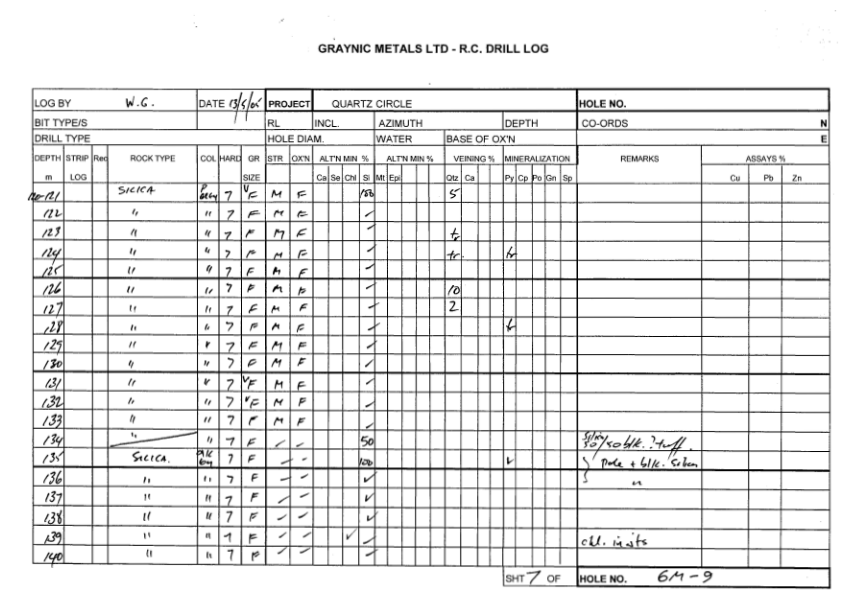 GRAYNIC METALS LTD - R.C. DRILL LOG
LOG BY W.G. DATE 13/5/05 PROJECT QUARTZ CIRCLE HOLE NO.
BIT TYPE/S RL INCL. AZIMUTH DEPTH CO-ORDS N
DRILL TYPE HOLE DIAM. WATER BASE OF OX'N E
DEPTH STRIP Rec ROCK TYPE COL HARD GR STR OX'N ALT'N MIN % ALT'N MIN % VEINING % MINERALIZATION REMARKS ASSAYS %
m LOG SIZE Ca Se Chl Si Mt Epi Qtz Ca Py Cp Po Gn Sp Cu Pb Zn
120-121 SILICA P Grey 7 VF M F 100 5
122 " " 7 F M F ✓
123 " " 7 F M F ✓ tr
124 " " 7 F M F ✓ tr. tr
125 " " 7 F M F ✓
126 " " 7 F M F ✓ 10
127 " " 7 F M F ✓ 2
128 " " 7 F M F ✓ tr
129 " " 7 F M F ✓
130 " " 7 F M F ✓
131 " " 7 VF M F ✓
132 " " 7 VF M F ✓
133 " " 7 F M F ✓
134 " " 7 F - - 50 50/50 blk. ? tuff.
135 SILICA. 7 F - - 100 ✓ Pale + blk.
136 " " 7 F - - ✓ "
137 " " 7 F - - ✓
138 " " 7 F - - ✓
139 " " 7 F - - ✓ ✓ chl. in jts
140 " " 7 F - - ✓
SHT 7 OF HOLE NO. GM-9